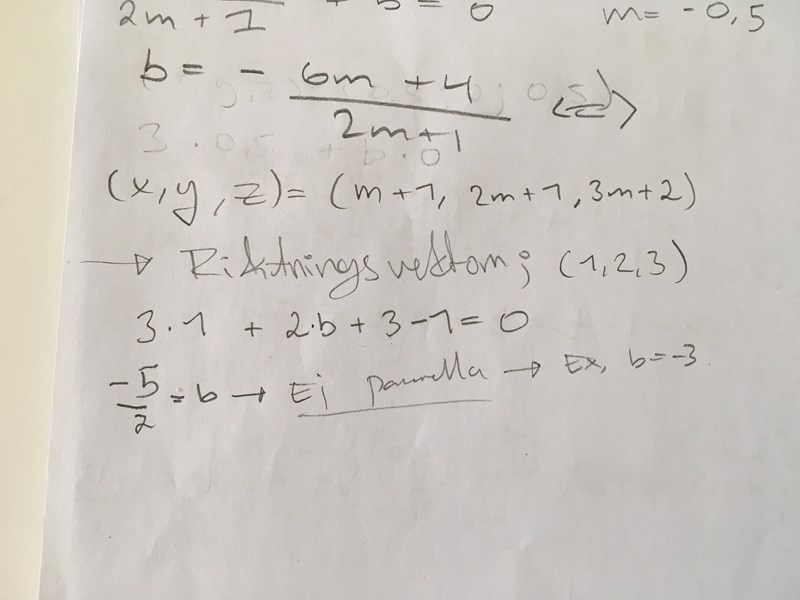 2m + 1 + b = 0 m = -0,5
b = - 6m + 4 / 2m+1 <=>
3 · 0,5 + b · 0
(x, y, z) = (m+1, 2m+1, 3m+2)
→ Riktningsvektorn; (1,2,3)
3·1 + 2·b + 3-1 = 0
-5/2 = b → Ej parallella → Ex, b = -3